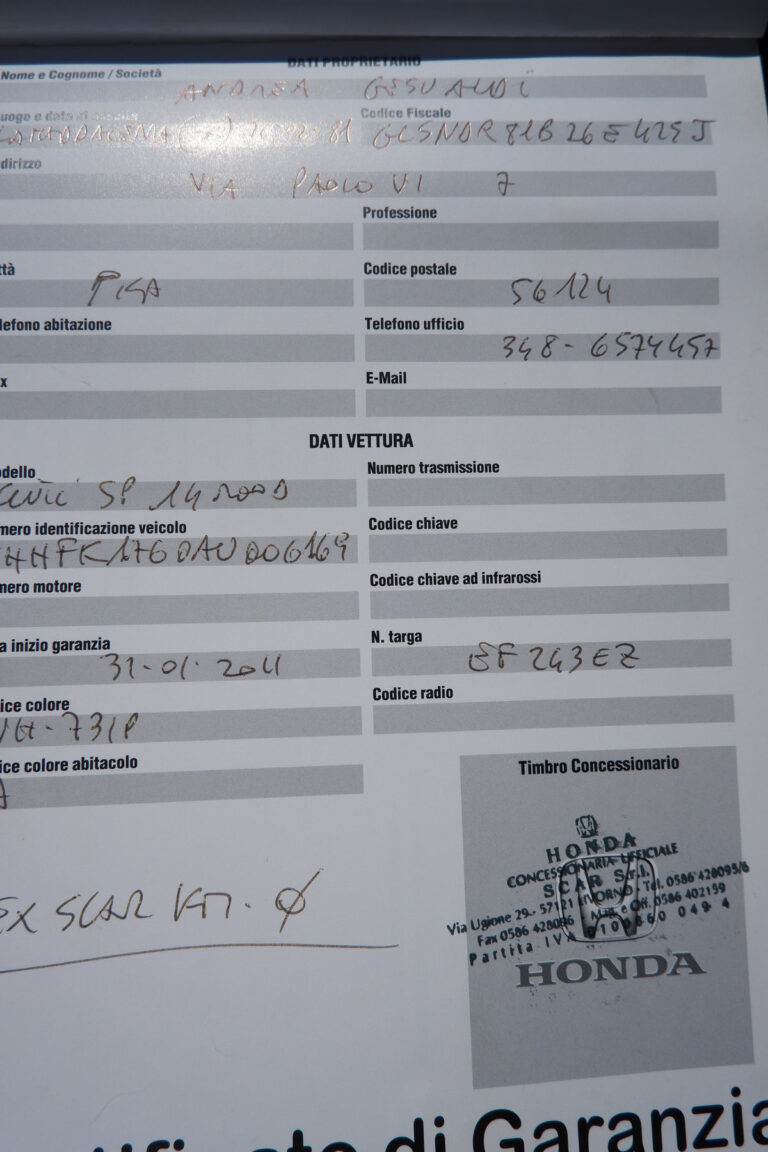 DATI PROPRIETARIO
Nome e Cognome / Società
ANDREA GESUALDI
uogo e data di
Codice Fiscale
GLSNDR 81B 26 E 425 J
dirizzo
VIA PAOLO VI 7
Professione
ttà
Codice postale
PISA
56124
lefono abitazione
Telefono ufficio
348-6574457
x
E-Mail
DATI VETTURA
dello
Numero trasmissione
CIVIC 5P 14
mero identificazione veicolo
Codice chiave
nero motore
Codice chiave ad infrarossi
a inizio garanzia
N. targa
31-01-2011
EF 243EZ
ice colore
Codice radio
NH-731P
ice colore abitacolo
A
Timbro Concessionario
EX SCAR KM. Ø
HONDA
CONCESSIONARIA UFFICIALE
SCAR S.r.l.
Via Ugione 29 - 57121 LIVORNO - Tel. 0586 428095/6
Fax 0586 428096 Mag. e Off. 0586 402159
Partita IVA 0100860 049 4
HONDA
di Garanzia